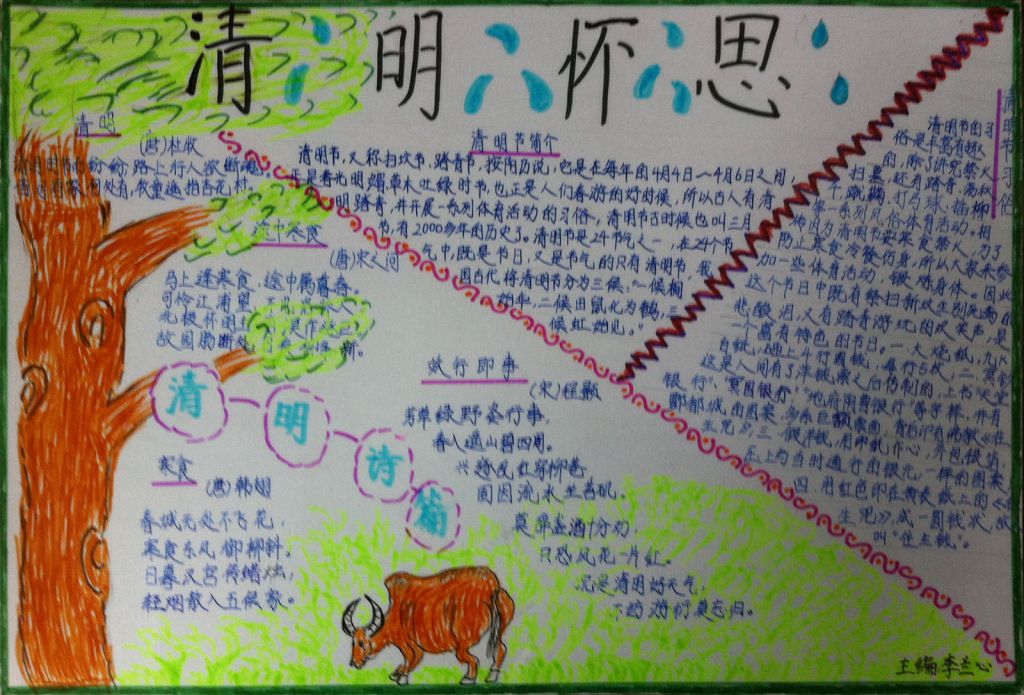 清明怀思
清明
(唐)杜牧
清明时节雨纷纷,路上行人欲断魂。
有,牧童遥指杏花村。
途中寒食
(唐)宋之问
马上逢寒食,途中属暮春。
可怜江浦望,
北极怀明主,
故园肠断处,
清明诗篇
寒食
(唐)韩翃
春城无处不飞花,
寒食东风御柳斜。
日暮汉宫传蜡烛,
轻烟散入五侯家。
清明节简介
清明节,又称扫坟节、踏青节,按阳历说,它是在每年的4月4日~4月6日之间,
正是春光明媚草木吐绿时节,也正是人们春游的好时候,所以古人有清
明踏青,并开展一系列体育活动的习俗,清明节古时候也叫三月
节,有2000多年的历史了。清明节是24节气之一,在24个节
气中,既是节日,又是节气的只有清明节。我
国古代将清明节分为三候:"一候桐
始华,二候田鼠化为鹌,三
候虹始见。"
郊行即事
(宋)程颢
芳草绿野恣行事,
春入遥山碧四周。
兴逐乱红穿柳巷
困因流水坐苔矶。
莫辞盏酒十分劝,
只恐风花一片红。
况是清明好天气,
不妨游衍莫忘归。
清明节习俗
清明节的习
俗是丰富有趣
的,除了讲究禁火、
扫墓,还有踏青、荡秋
千、蹴鞠、打马球、插柳
等一系列风俗体育活动。相
传因为清明节要寒食禁火,为了
防止寒食冷餐伤身,所以大家来参
加一些体育活动,锻炼身体。因此
这个节日中既有祭扫新坟生别死离的
悲酸泪,又有踏青游玩的欢笑声,是
一个富有特色的节日。一火烧纸,九
白纸,砸上4行圆钱,每行5枚;二冥钞
这是人间有了洋钱票之后仿制的,上书"天堂
银行"、"冥国银行"、"地府阴曹银行"等字样,并有
酆都城的图案,多系巨额票面,背后印有佛教《往
生咒》;三假洋钱,用硬纸作心,外包银箔,
压上与当时通行的银元一样的图案
四用红色印在黄表纸上的《往
生咒》,成一圆钱状,故
叫"往生钱"。
主编:李兰心